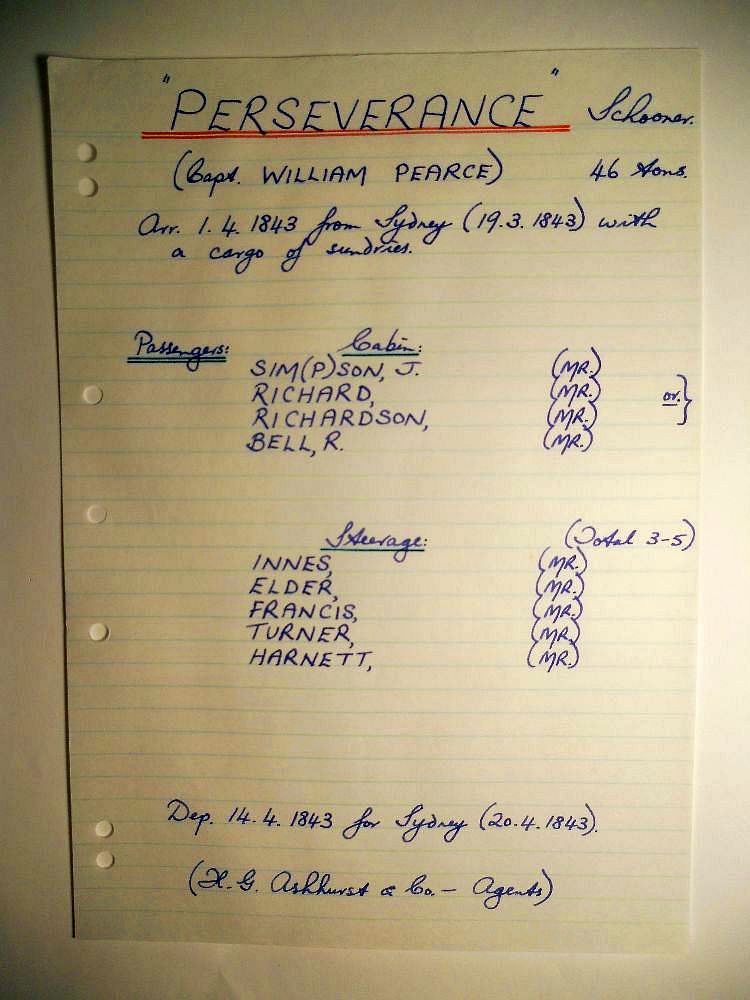 "PERSEVERANCE" Schooner.
(Capt. WILLIAM PEARCE) 46 tons.
Arr. 1.4.1843 from Sydney (19.3.1843) with
a cargo of sundries.
Passengers: Cabin:
SIM(P)SON, J. (MR.)
RICHARD, (MR.)
or. }
RICHARDSON, (MR.)
BELL, R. (MR.)
Steerage: (Total 3-5)
INNES, (MR.)
ELDER, (MR.)
FRANCIS, (MR.)
TURNER, (MR.)
HARNETT, (MR.)
Dep. 14.4.1843 for Sydney (20.4.1843).
(H.G. Ashhurst & Co. - Agents)